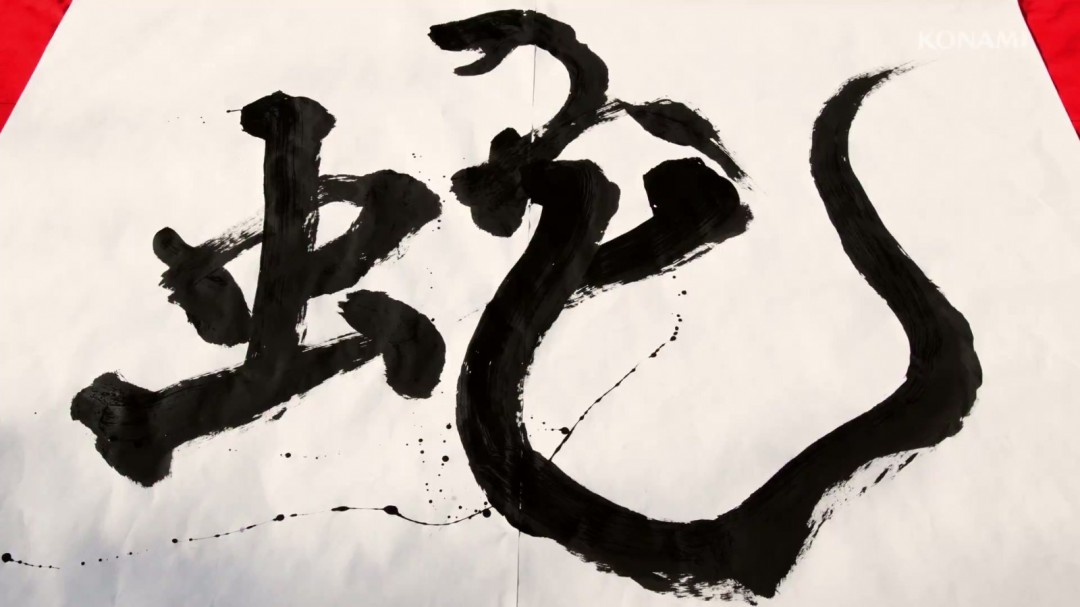 蛇
KONAMI